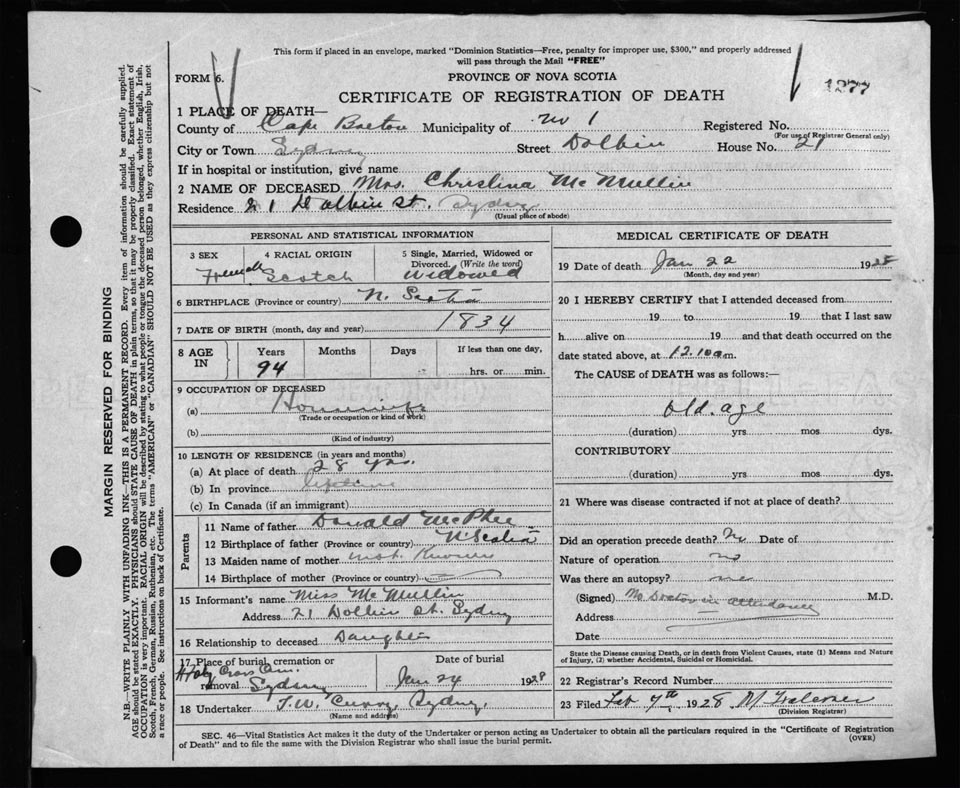 This form if placed in an envelope, marked "Dominion Statistics—Free, penalty for improper use, $300," and properly addressed
will pass through the Mail "FREE"
FORM 6.
PROVINCE OF NOVA SCOTIA
1277
CERTIFICATE OF REGISTRATION OF DEATH
1 PLACE OF DEATH—
County of Cape Breton Municipality of No 1 Registered No.
(For use of Registrar General only)
City or Town Sydney Street Dolbin House No. 21
If in hospital or institution, give name
2 NAME OF DECEASED Mrs. Christina McMullin
Residence 21 Dolbin St. Sydney
(Usual place of abode)
PERSONAL AND STATISTICAL INFORMATION
3 SEX 4 RACIAL ORIGIN 5 Single, Married, Widowed or
Divorced. (Write the word)
Female Scotch Widowed
6 BIRTHPLACE (Province or country) N. Scotia
7 DATE OF BIRTH (month, day and year) 1834
8 AGE IN Years Months Days If less than one day,
94 hrs. or min.
9 OCCUPATION OF DECEASED
(a) Housewife
(Trade or occupation or kind of work)
(b)
(Kind of industry)
10 LENGTH OF RESIDENCE (in years and months)
(a) At place of death 28 yrs.
(b) In province lifetime
(c) In Canada (if an immigrant)
Parents
11 Name of father Donald McPhee
12 Birthplace of father (Province or country) N. Scotia
13 Maiden name of mother not known
14 Birthplace of mother (Province or country)
15 Informant's name Miss McMullin
Address 21 Dolbin St. Sydney
16 Relationship to deceased Daughter
17 Place of burial, cremation or Date of burial
Holy Cross Cem.
removal Sydney Jan 24 1928
18 Undertaker T.W. Curry, Sydney,
(Name and address)
MEDICAL CERTIFICATE OF DEATH
19 Date of death Jan 22 1928
(Month, day and year)
20 I HEREBY CERTIFY that I attended deceased from
19 to 19 that I last saw
h alive on 19 and that death occurred on the
date stated above, at 12.10 a m.
The CAUSE of DEATH was as follows:—
old. age
(duration) yrs mos dys.
CONTRIBUTORY
(duration) yrs mos dys.
21 Where was disease contracted if not at place of death?
Did an operation precede death? No Date of
Nature of operation no
Was there an autopsy? no
(Signed) No Doctor in attendance M.D.
Address
Date
State the Disease causing Death, or in death from Violent Causes, state (1) Means and Nature
of Injury, (2) whether Accidental, Suicidal or Homicidal.
22 Registrar's Record Number
23 Filed Feb 7th 1928
(Division Registrar)
SEC. 46—Vital Statistics Act makes it the duty of the Undertaker or person acting as Undertaker to obtain all the particulars required in the "Certificate of Registration
of Death" and to file the same with the Division Registrar who shall issue the burial permit.
(OVER)
MARGIN RESERVED FOR BINDING
N.B.—WRITE PLAINLY WITH UNFADING INK—THIS IS A PERMANENT RECORD. Every item of information should be carefully supplied.
AGE should be stated EXACTLY. PHYSICIANS should STATE CAUSE OF DEATH in plain terms, so that it may be properly classified. Exact statement of
OCCUPATION is very important. RACIAL ORIGIN will be described by stating to what people or tongue the deceased person belonged, whether English, Irish,
Scotch, French, German, Russian, Ruthenian, etc. The terms "AMERICAN" or "CANADIAN" SHOULD NOT BE USED as they express citizenship but not
a race or people. See instructions on back of Certificate.